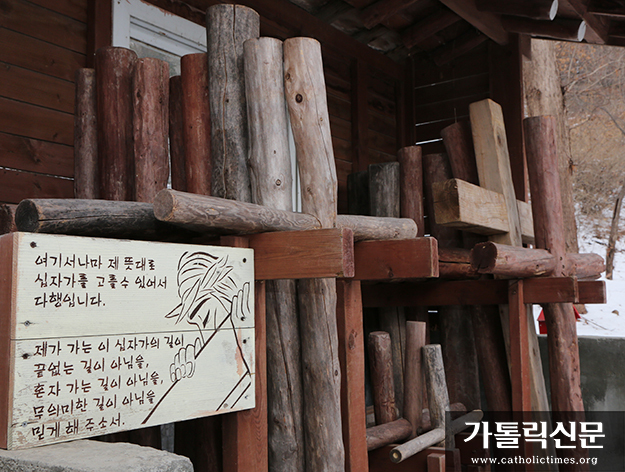 여기서나마 제 뜻대로
십자가를 고를수 있어서
다행입니다.
제가 가는 이 십자가의 길이
끝없는 길이 아님을,
혼자 가는 길이 아님을,
무의미한 길이 아님을
믿게 해 주소서.
가톨릭신문
www.catholictimes.org